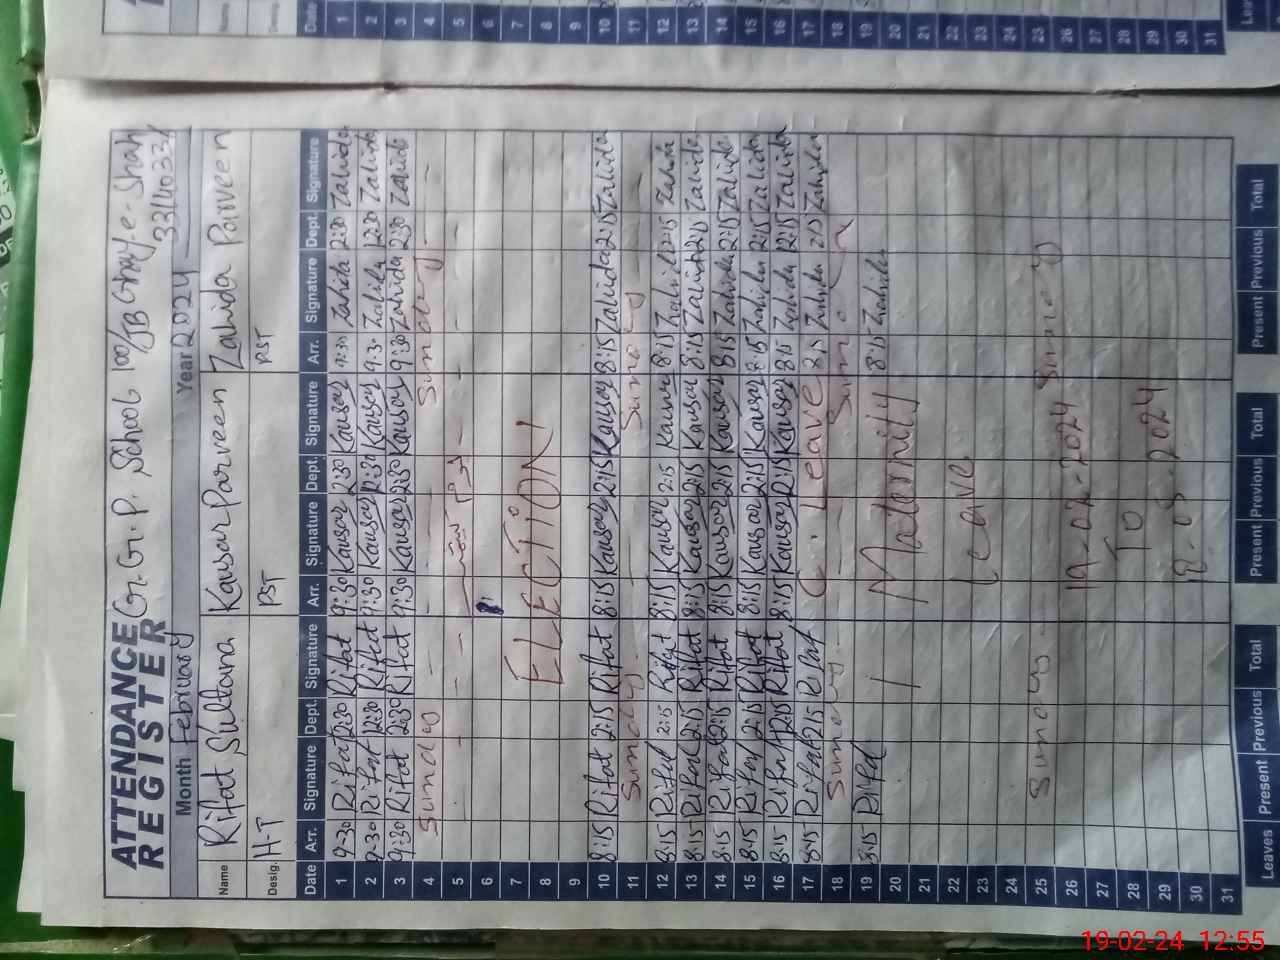 ATTENDANCE REGISTER
G.G.P. School 100/JB
33140331
Month February Year 2024
Name Rifat Sultana Kausar Parveen Zahida Parveen
Desig. H-T PST PST
Date Arr. Signature Dept. Signature Arr. Signature Dept. Signature Arr. Signature Dept. Signature
1 9-30 Rifat 2:30 Rifat 9:30 Kausar 2:30 Kausar 9:30 Zahida 2:30 Zahida
2 9-30 Rifat 2:30 Rifat 9:30 Kausar 2:30 Kausar 9:30 Zahida 2:30 Zahida
3 9:30 Rifat 2:30 Rifat 9:30 Kausar 2:30 Kausar 9:30 Zahida 2:30 Zahida
4 Sunday Sunday
5
6 8:
7
8 ELECTION
9
10 8:15 Rifat 2:15 Rifat 8:15 Kausar 2:15 Kausar 8:15 Zahida 2:15 Zahida
11 Sunday Sunday
12 8:15 Rifat 2:15 Rifat 8:15 Kausar 2:15 Kausar 8:15 Zahida 2:15 Zahida
13 8:15 Rifat 2:15 Rifat 8:15 Kausar 2:15 Kausar 8:15 Zahida 2:15 Zahida
14 8:15 Rifat 2:15 Rifat 8:15 Kausar 2:15 Kausar 8:15 Zahida 2:15 Zahida
15 8:15 Rifat 2:15 Rifat 8:15 Kausar 2:15 Kausar 8:15 Zahida 2:15 Zahida
16 8:15 Rifat 2:15 Rifat 8:15 Kausar 2:15 Kausar 8:15 Zahida 2:15 Zahida
17 8:15 Rifat 2:15 Rifat C. Leave 8:15 Zahida 2:15 Zahida
18 Sunday
19 8:15 Rifat 8:15 Zahida
20 Maternity
21
22 Leave
23
24
25 Sunday Sunday
26 19-02-2024
27
28 To
29 2024
30
31
Leaves Present Previous Total Present Previous Total Present Previous Total
Name
Desig.
Date
1
2
3
4
5
6
7
8
9
10
11
12
13
14
15
16
17
18
19
20
21
22
23
24
25
26
27
28
29
30
31
19-02-24 12:55